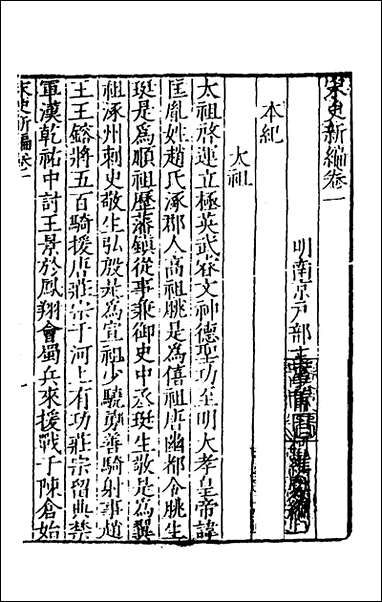 宋史新編卷一
明南京戶部主
本紀
太祖
太祖啓運立極英武睿文神德聖功至明大孝皇帝諱
匡胤姓趙氏涿郡人高祖朓是爲僖祖唐幽都令朓生
珽是爲順祖歷藩鎮從事兼御史中丞珽生敬是爲翼
祖涿州刺史敬生弘殷是爲宣祖少驍勇善騎射事趙
王王鎔將五百騎援唐莊宗于河上有功莊宗留典禁
軍漢乾祐中討王景於鳳翔會蜀兵來援戰于陳倉始
宋史新編卷一
一